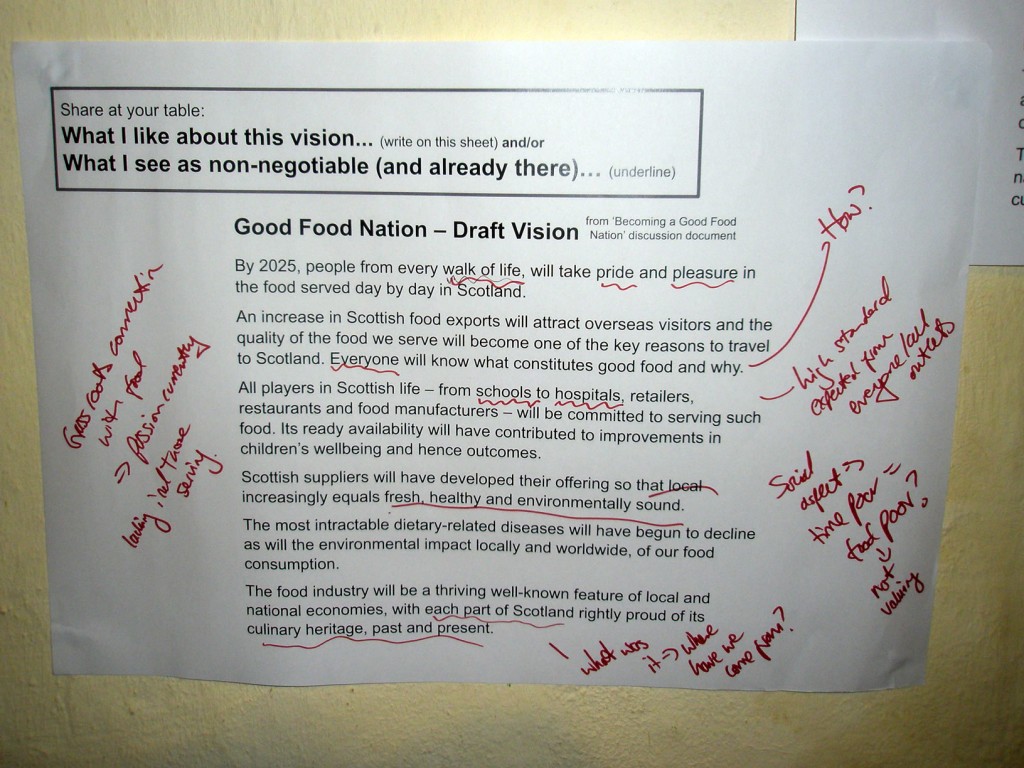 Share at your table:
What I like about this vision... (write on this sheet) and/or
What I see as non-negotiable (and already there)... (underline)
Good Food Nation – Draft Vision
from 'Becoming a Good Food
Nation' discussion document
By 2025, people from every walk of life, will take pride and pleasure in
the food served day by day in Scotland.
An increase in Scottish food exports will attract overseas visitors and the
quality of the food we serve will become one of the key reasons to travel
to Scotland. Everyone will know what constitutes good food and why.
All players in Scottish life – from schools to hospitals, retailers,
restaurants and food manufacturers – will be committed to serving such
food. Its ready availability will have contributed to improvements in
children's wellbeing and hence outcomes.
Scottish suppliers will have developed their offering so that local
increasingly equals fresh, healthy and environmentally sound.
The most intractable dietary-related diseases will have begun to decline
as will the environmental impact locally and worldwide, of our food
consumption.
The food industry will be a thriving well-known feature of local and
national economies, with each part of Scotland rightly proud of its
culinary heritage, past and present.
How?
high standard
expected from
everyone/all
outlets
Social
aspect =>
time poor =
food poor?
not
valuing
what was
it => where
have we
come from?
Grass roots connection
with food
=> passion currently
lacking, incl those
serving.